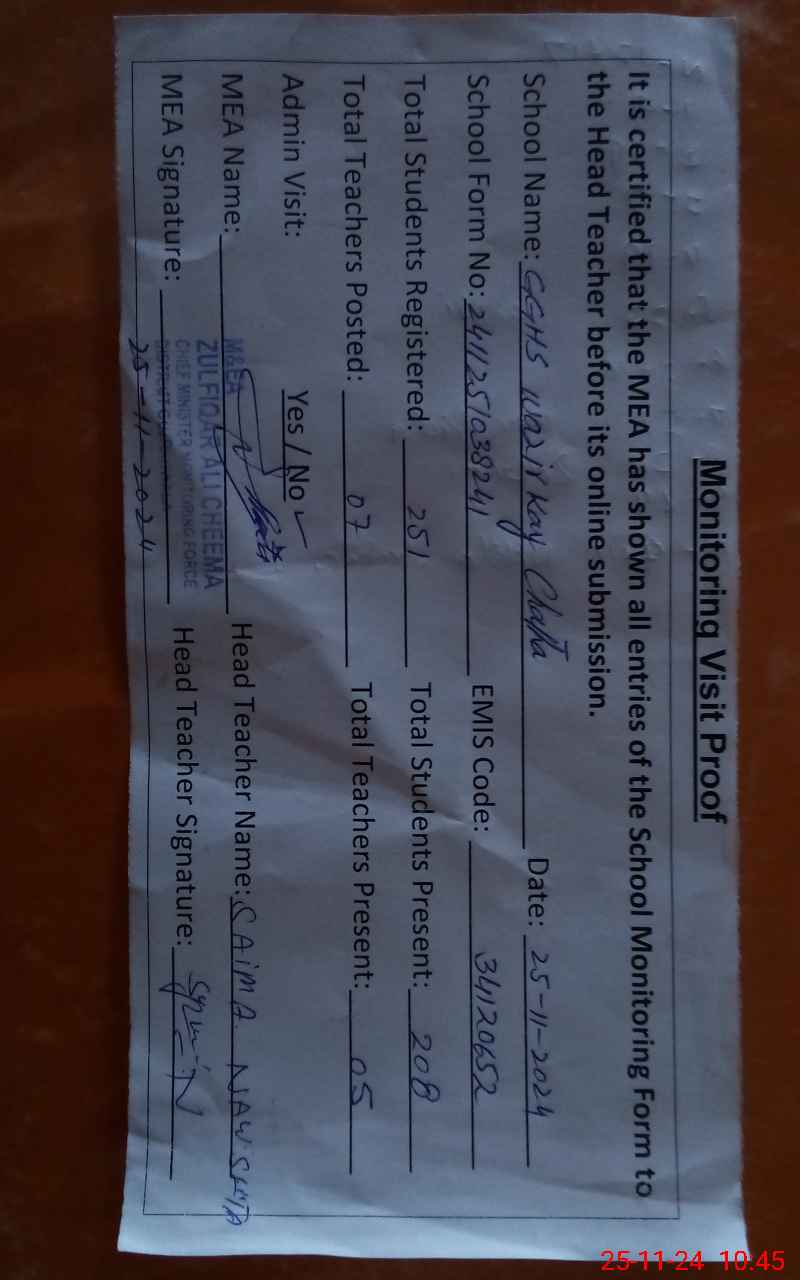 Monitoring Visit Proof
It is certified that the MEA has shown all entries of the School Monitoring Form to
the Head Teacher before its online submission.
School Name: GGHS Wazir Kay Chatta Date: 25-11-2024
School Form No: 2411251038241 EMIS Code: 34120652
Total Students Registered: 251 Total Students Present: 208
Total Teachers Posted: 07 Total Teachers Present: 05
Admin Visit: Yes / No ✓
MEA Name: Head Teacher Name: SAIMA
M&EA
ZULFIQAR ALI CHEEMA
CHIEF MINISTER MONITORING FORCE
MEA Signature: Head Teacher Signature:
25-11-2024
25-11-24 10:45